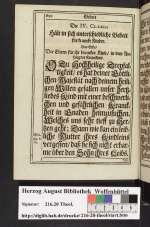 Gebet
Die IV. Classis
Hält in sich unterschiedliche Gebett
für krancke Kinder.
Das Erste/
Der Eltern für ihr kranckes Kind/ in den
O Du Hochheilige Dreyfal-
tigkeit/ es hat deiner Göttli-
chen Majestät nach deinem heili-
gen Willen gefallen unser hertz-
liebes Kind mit einer
chen und gefährlichen Kranck-
heit in Gnaden heimzusuchen/
Welches uns sehr tieff zu Her-
tzen geht: Dann wie kan ein leib-
liche Mutter ihres Kindleins
vergessen/ daß sie sich nicht erbar-
me über den Sohn ihres Leibs?
Herzog August Bibliothek Wolfenbüttel
Signatur: 216.20 Theol.
http://diglib.hab.de/drucke/216-20-theol/start.htm